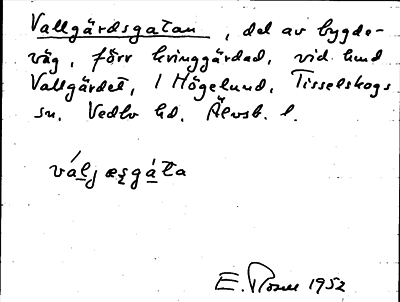 Vallgärdsgatan, del av bygde-
väg, förr kringgärdad, vid hmd
Vallgärdet, 1 Högelund, Tisselskogs
sn. Vedbo hd. Älvsb. l.
váljæsgáta
E. Rosell 1952